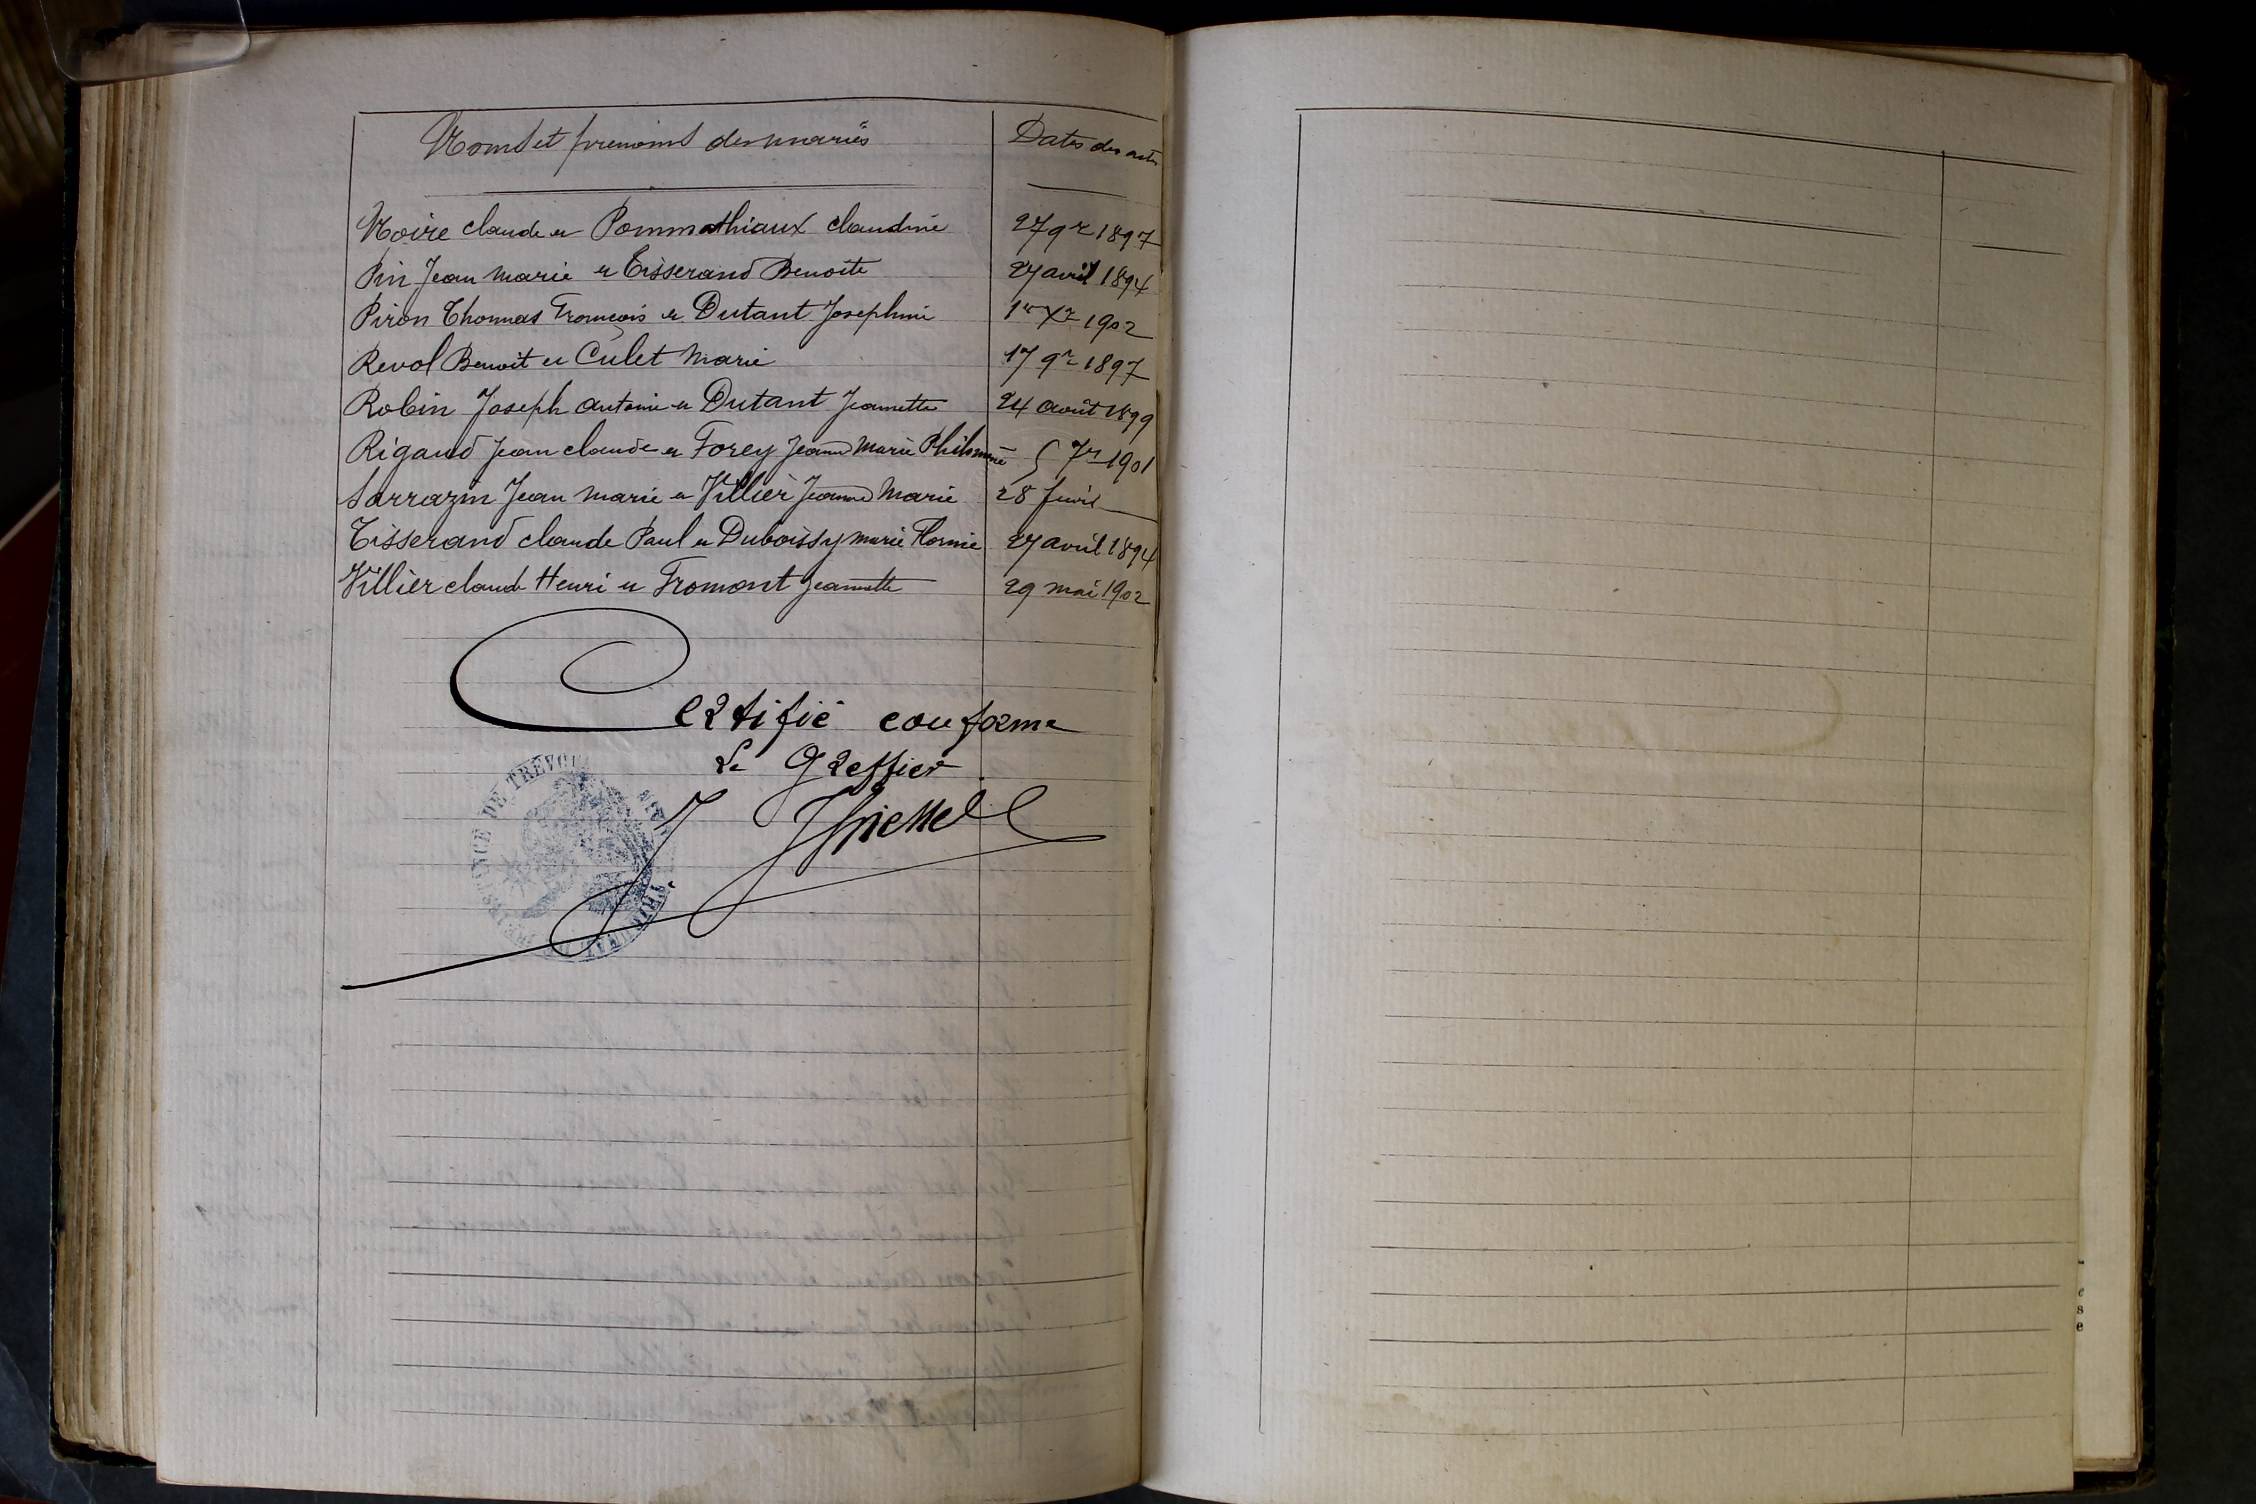 Noms et prénoms des mariés
Dates des actes
Noire Claude et Pommathiaux Claudine 27 9re 1897
Pin Jean Marie et Tisserand Benoite 27 avril 1894
Piron Thomas François et Dutant Josephine 1er Xre 1902
Revol Benoit et Culet Marie 17 9re 1897
Robin Joseph Antoine et Dutant Jeannette 24 août 1899
Rigaud Jean Claude et Forey Jeanne Marie Philomène 5 7re 1901
Sarrazin Jean Marie et Villier Jeanne Marie 28
Tisserand Claude Paul et Duboissy Marie 27 avril 1894
Villier Claude Henri et Fromont Jeannette 29 mai 1902
Certifié conforme
Le Greffier
TRIBUNAL DE 1RE INSTANCE DE TRÉVOUX
e
s
e